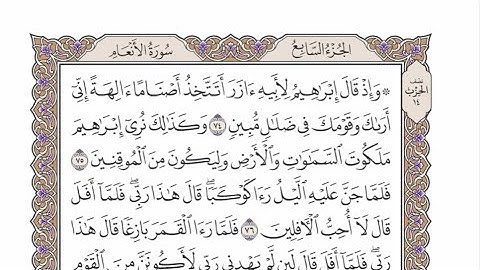 سُورَةُ الأَنْعَامِ الجُزْءُ السَّابِعُ
۞ وَإِذۡ قَالَ إِبۡرَٰهِيمُ لِأَبِيهِ ءَازَرَ أَتَتَّخِذُ أَصۡنَامًا ءَالِهَةً إِنِّيٓ
نصف الحزب ١٤
أَرَىٰكَ وَقَوۡمَكَ فِي ضَلَٰلٖ مُّبِينٖ ٧٤ وَكَذَٰلِكَ نُرِيٓ إِبۡرَٰهِيمَ
مَلَكُوتَ ٱلسَّمَٰوَٰتِ وَٱلۡأَرۡضِ وَلِيَكُونَ مِنَ ٱلۡمُوقِنِينَ ٧٥
فَلَمَّا جَنَّ عَلَيۡهِ ٱلَّيۡلُ رَءَا كَوۡكَبٗاۖ قَالَ هَٰذَا رَبِّيۖ فَلَمَّآ أَفَلَ
قَالَ لَآ أُحِبُّ ٱلۡأٓفِلِينَ ٧٦ فَلَمَّا رَءَا ٱلۡقَمَرَ بَازِغٗا قَالَ هَٰذَا
رَبِّيۖ فَلَمَّآ أَفَلَ قَالَ لَئِن لَّمۡ يَهۡدِنِي رَبِّي لَأَكُونَنَّ مِنَ ٱلۡقَوۡمِ